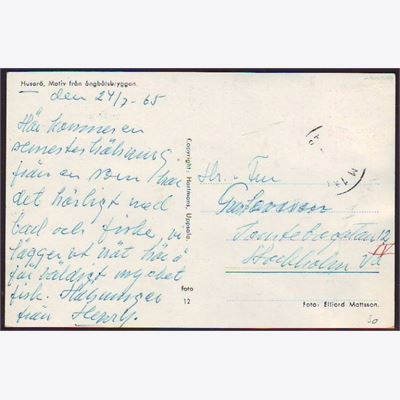 Husarö, Motiv från ångbåtsbryggan.
den 24/7-65
Här kommer en
semesterhälsning
från en som har
det härligt med
bad och fiske, vi
lägger ut nät
får väldigt mycket
fisk. Hälsningar
från Henry.
Copyright: Hartmans, Uppsala.
Foto
12
Hr. Fru
Gustavsson
Tomtebogatan 12
IV
Stockholm Va
Foto: Ellford Mattsson.
30